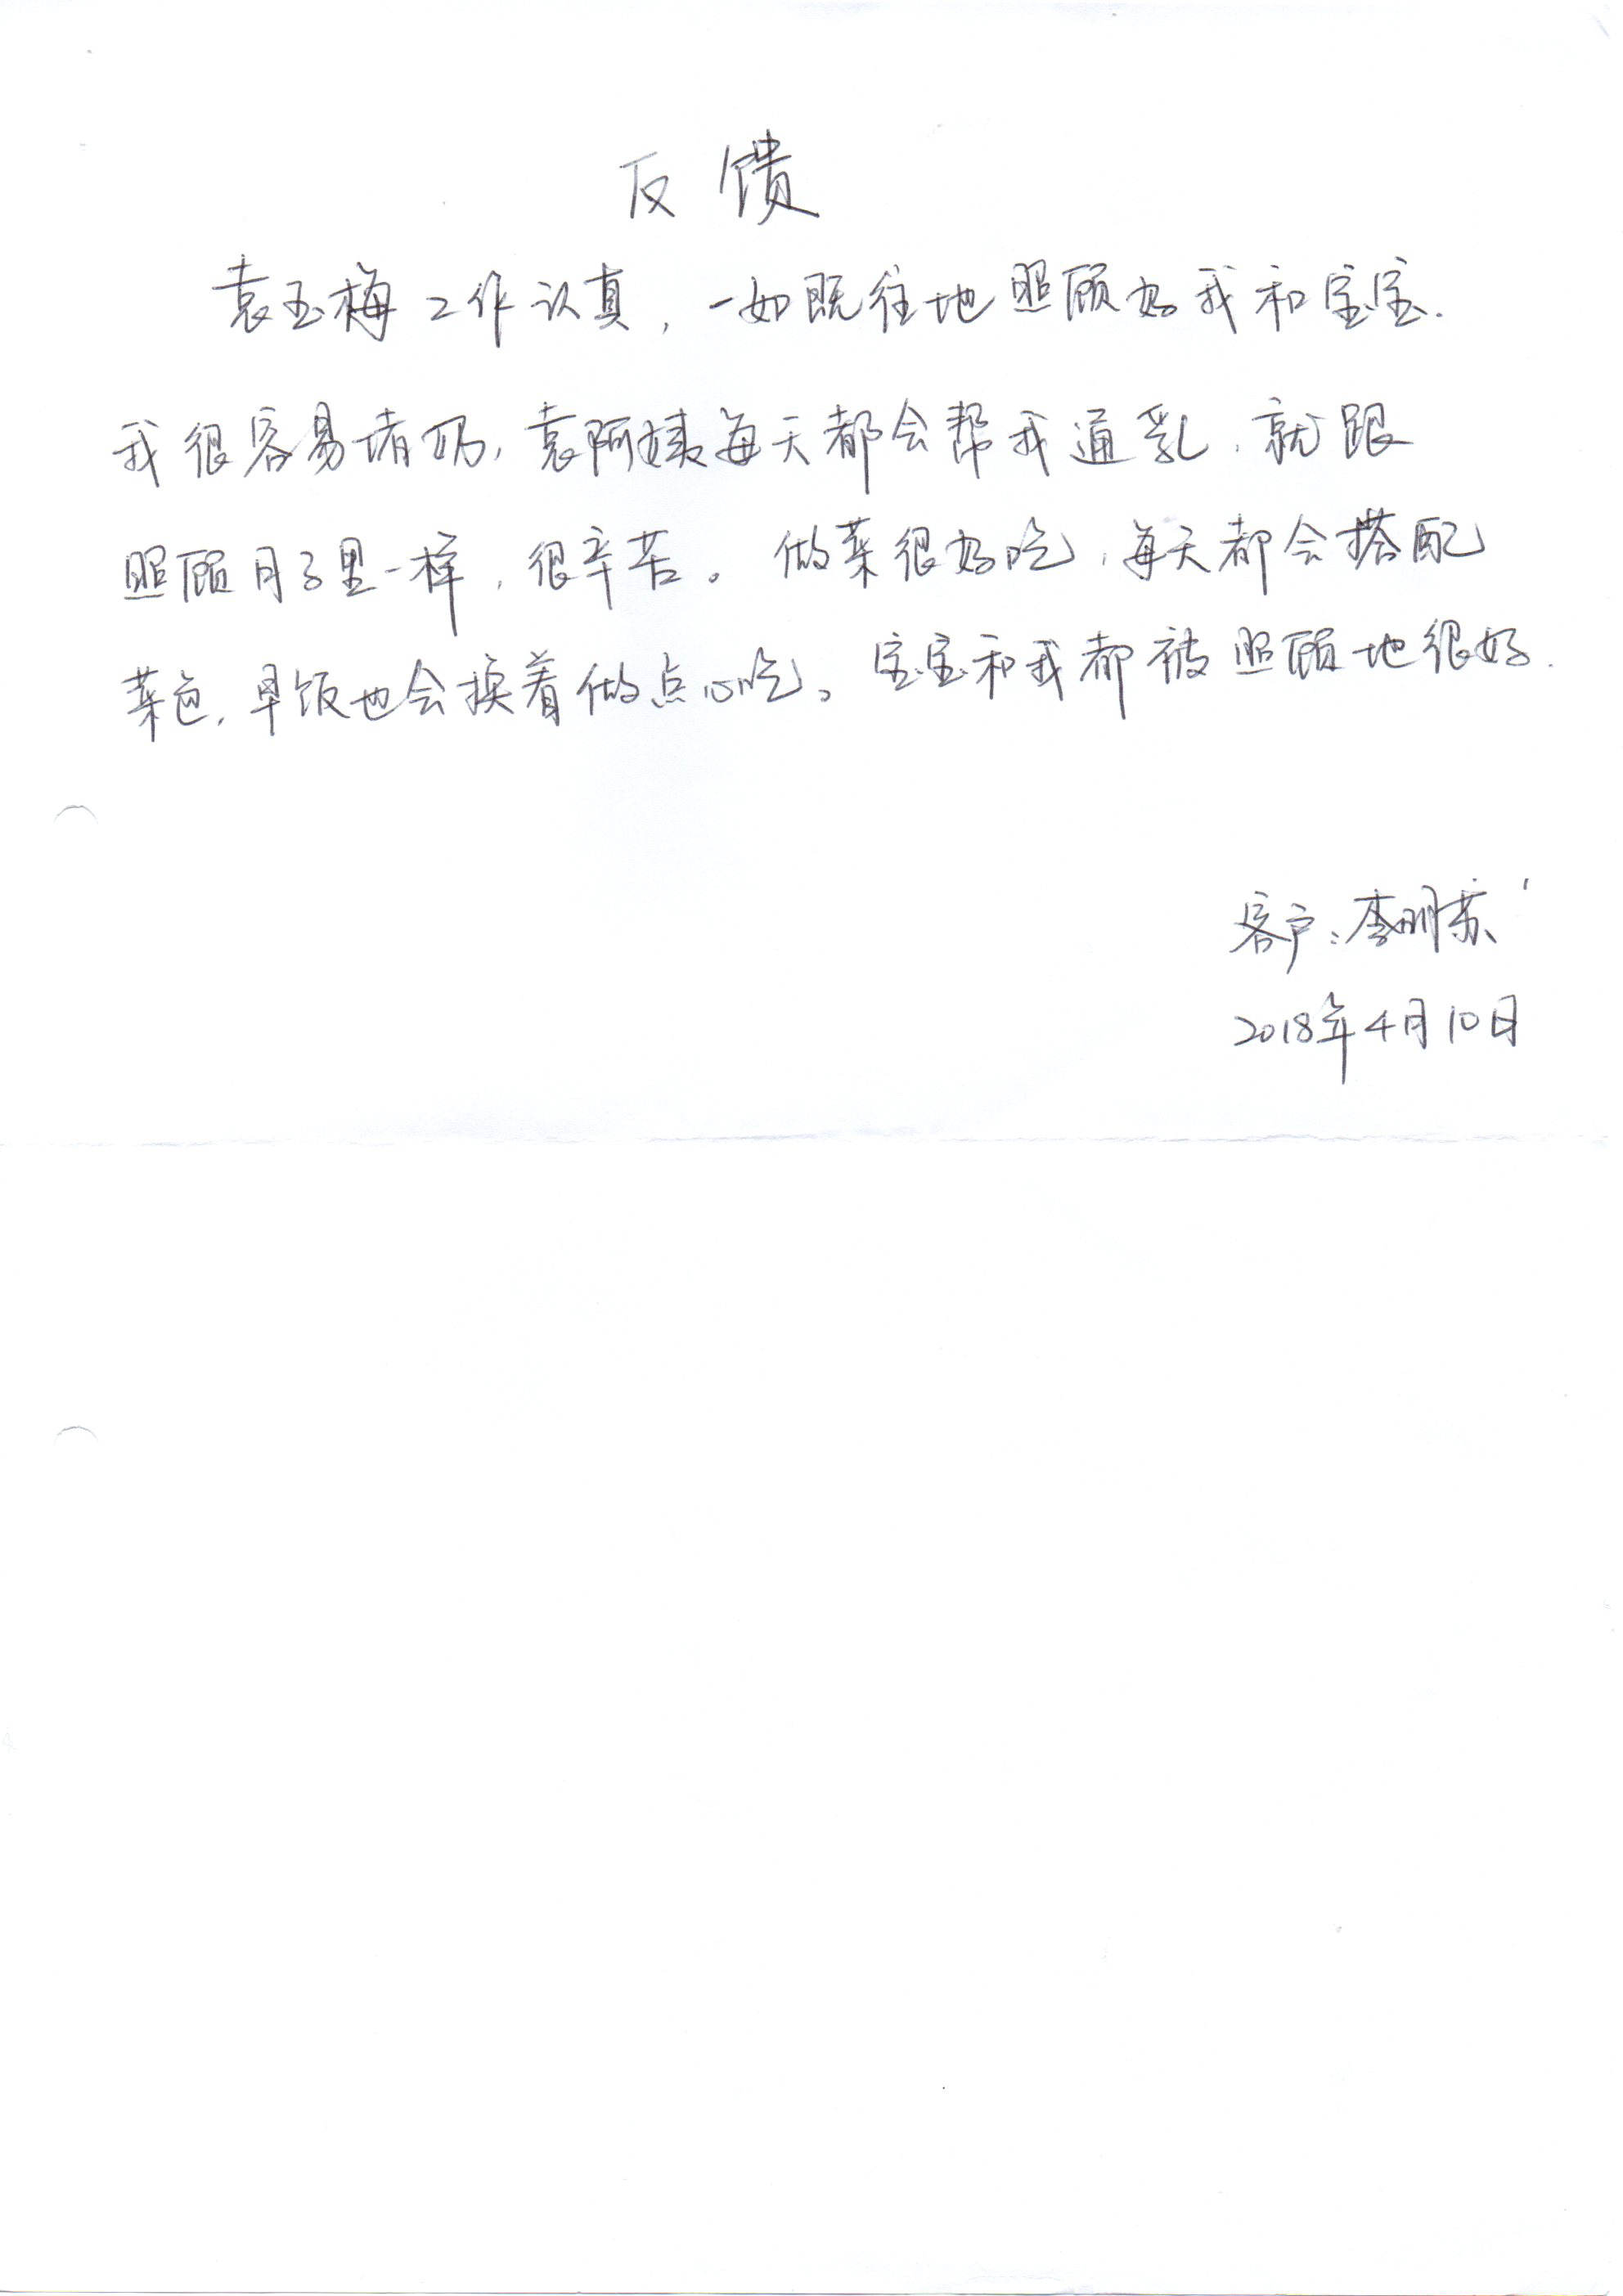 反馈
袁玉梅工作认真，一如既往地照顾好我和宝宝.
我很容易堵奶，袁阿姨每天都会帮我通乳，就跟
照顾月子里一样，很辛苦。做菜很好吃，每天都会搭配
菜色，早饭也会换着做点心吃。宝宝和我都被照顾地很好.
客户：李明苏
2018年4月10日